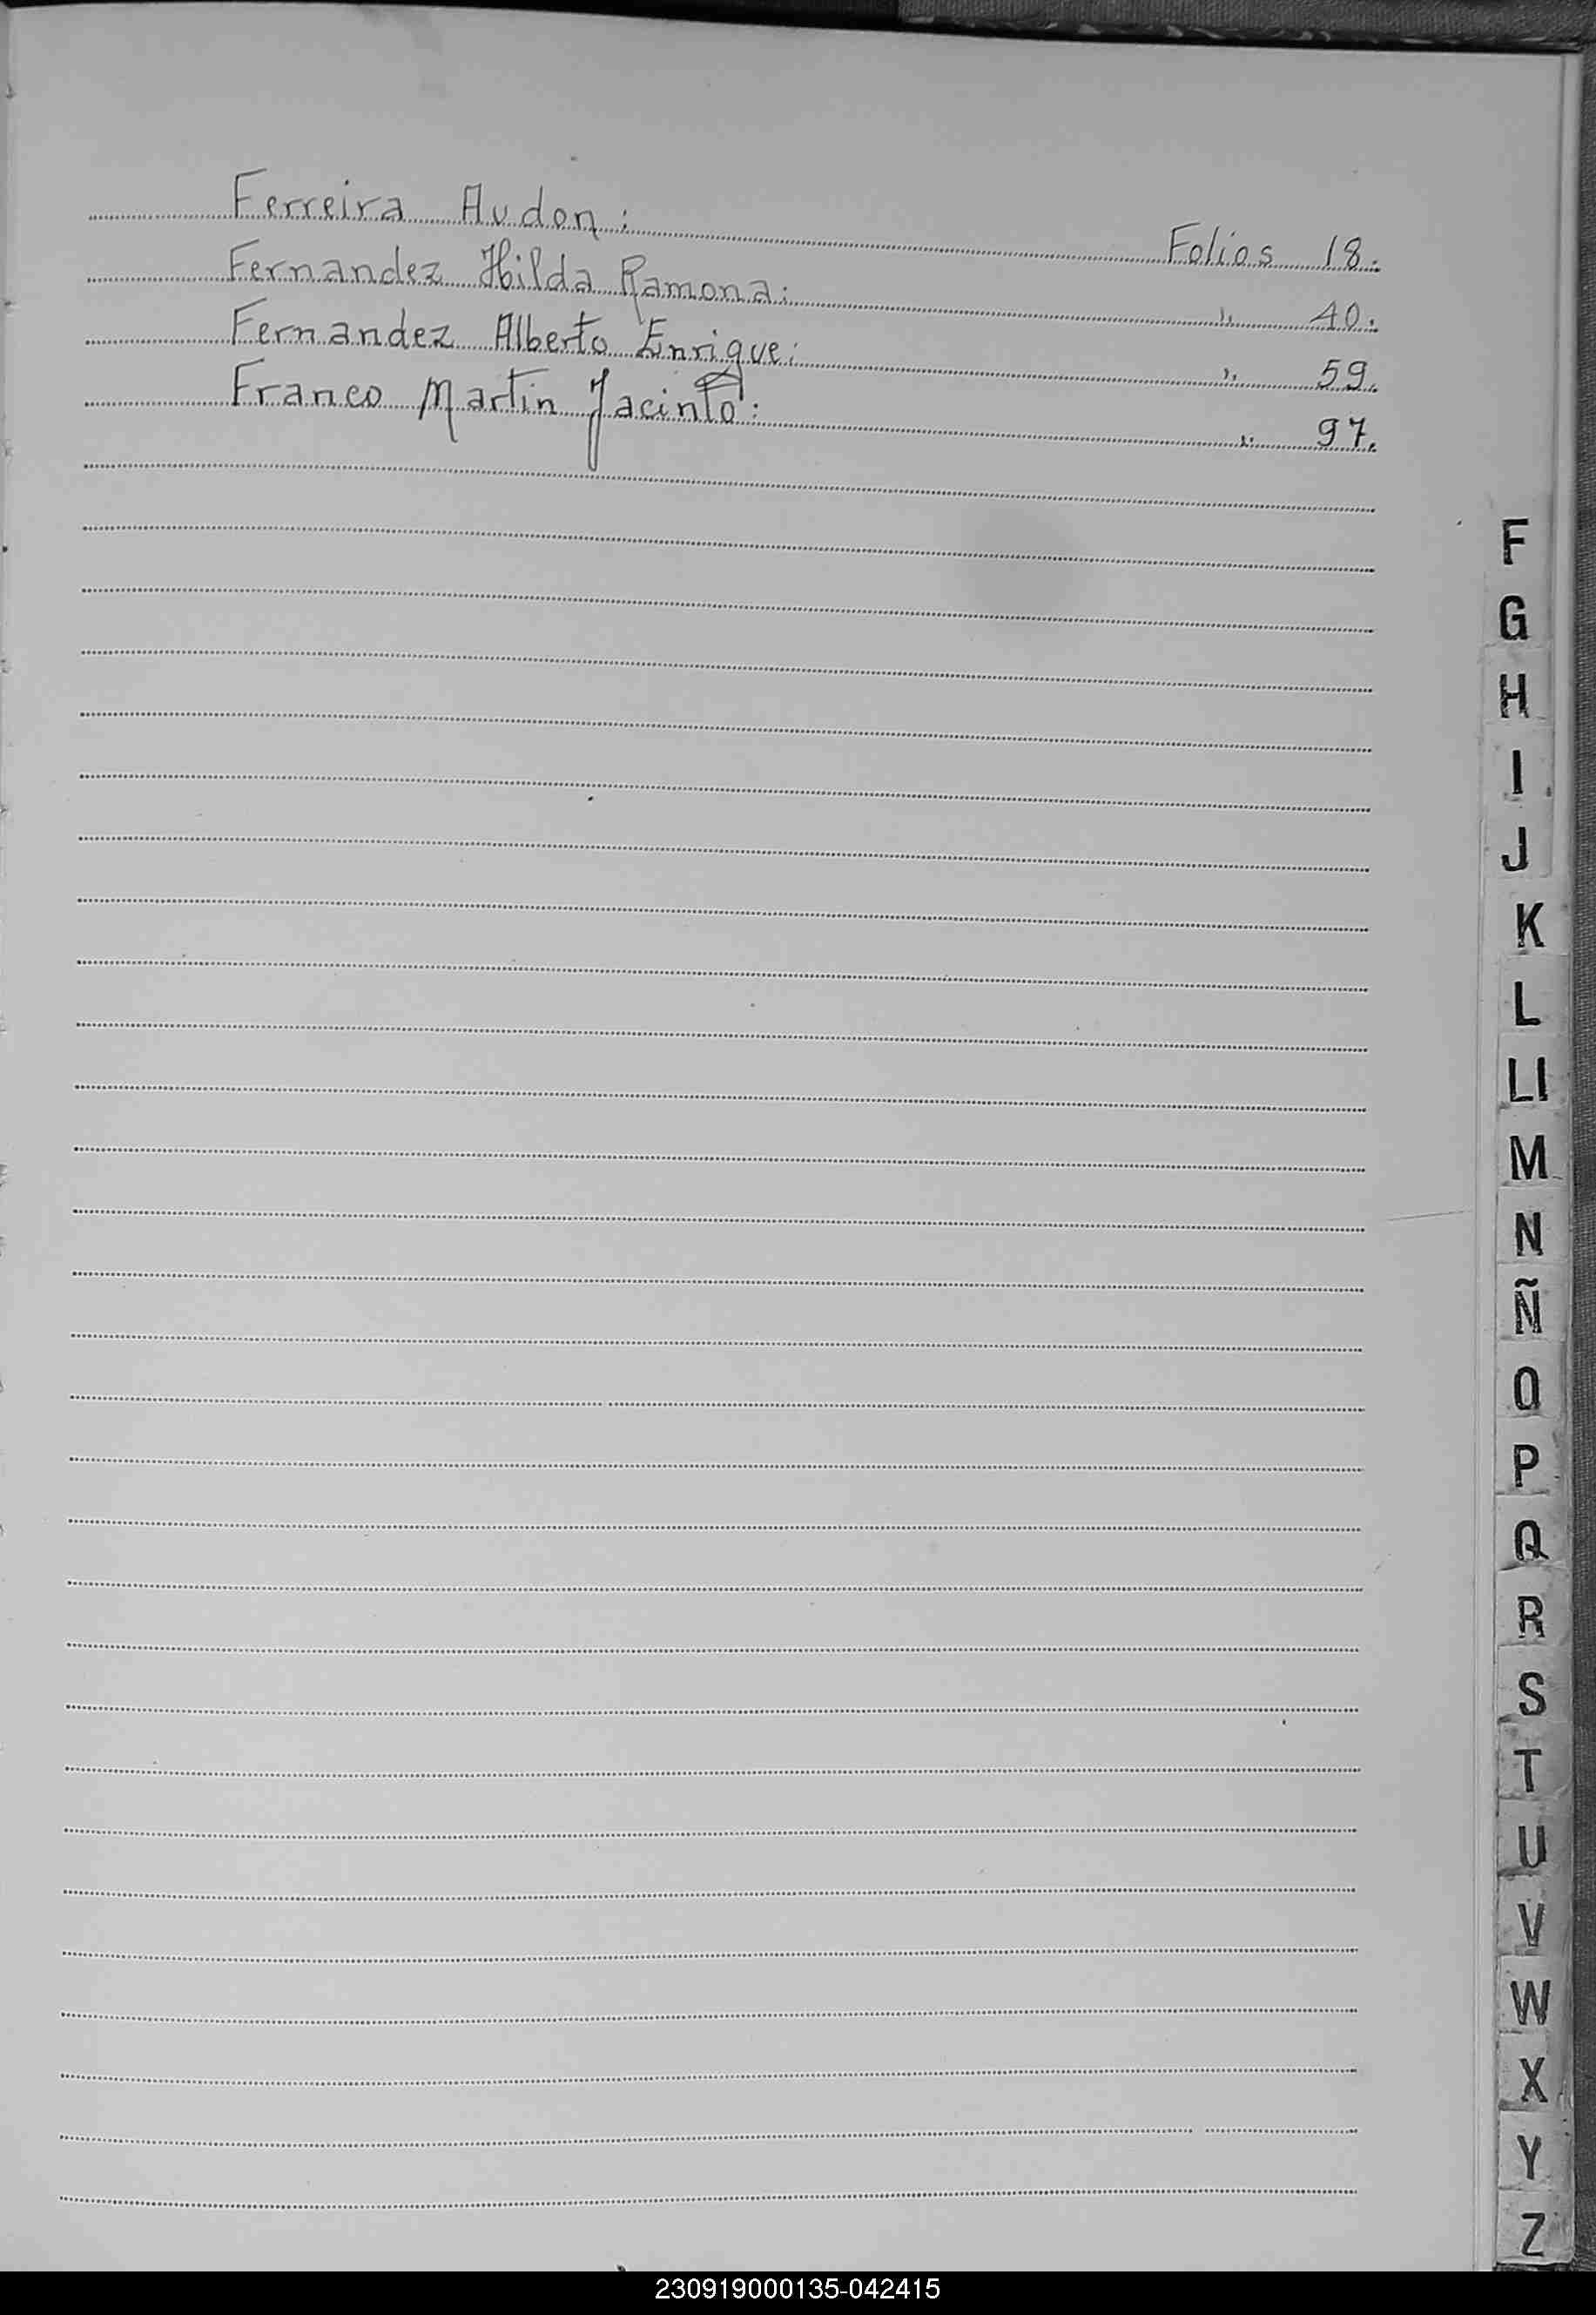 Ferreira Audon: Folios 18.
Fernandez Hilda Ramona: " 40.
Fernandez Alberto Enrique: " 59.
Franco Martin Jacinto: " 97.
F
G
H
I
J
K
L
Ll
M
N
Ñ
O
P
Q
R
S
T
U
V
W
X
Y
Z
230919000135-042415